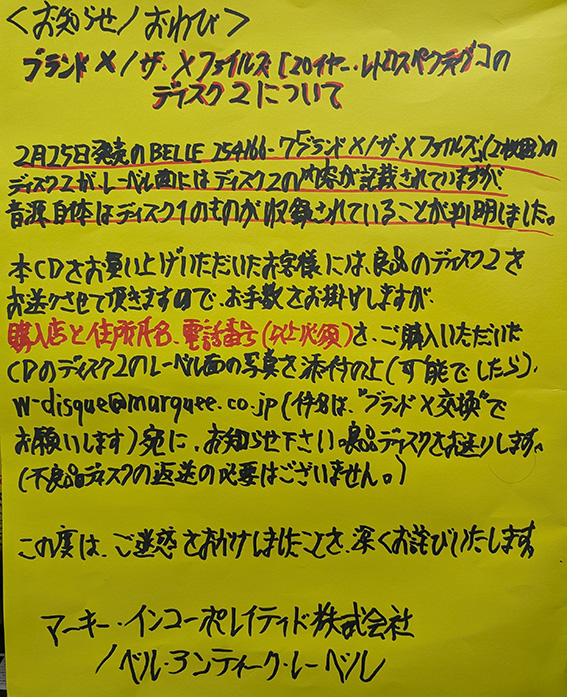 ＜お知らせ/おわび＞
ブランドX/ザ・Xファイルズ［20イヤー・レトロスペクティヴ］の
ディスク2について
2月25日発売のBELLE 254166-7「ブランドX/ザ・Xファイルズ」(2枚組)の
ディスク2がレーベル面にはディスク2の内容が記載されていますが、
音源自体はディスク1のものが収録されていることが判明しました。
本CDをお買い上げいただいたお客様には、良品のディスク2を
お送りさせて頂きますので、お手数をお掛けしますが、
購入店と住所氏名、電話番号(以上必須)を、ご購入いただいた
CDのディスク2のレーベル面の写真を添付の上(可能でしたら)、
w-disque@marquee.co.jp(件名は、"ブランドX交換"で
お願いします)宛に、お知らせ下さい。良品ディスクをお送りします。
(不良品ディスクの返送の必要はございません。)
この度は、ご迷惑をおかけしましたことを、深くお詫びいたします。
マーキー・インコーポレイティド株式会社
/ベル・アンティーク・レーベル